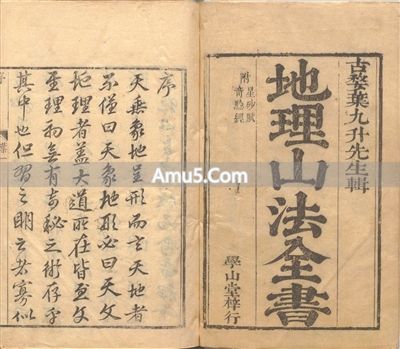 古婺葉九升先生輯
地理山法全書
附
星砂賦
學山堂梓行
序
天垂象地呈形而言天地者
不僅曰天象地形必曰天文
地理者蓋大道所在皆至文
至理初無有奇秘之術存乎
其中也但習之明之者寡似
序
Amu5.Com